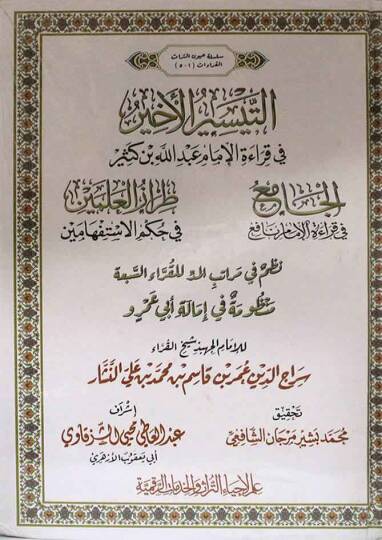 سلسلة عيون التراث
القراءات (١-٥)
التيسير الأخير
في قراءة الإمام عبد الله بن كثير
الجامع
في قراءة الإمام نافع
طراز العلمين
في حكم الاستفهامين
نظم في مراتب المد للقراء السبعة
منظومة في إمالة أبي عمرو
للإمام الجهبذ شيخ القراء
سراج الدين عمر بن قاسم بن محمد بن علي النشار
تحقيق
محمد بشير مرجان الشافعي
إشراف
عبد العاطي محيي الشرقاوي
أبي يعقوب الأزهري
علم لإحياء التراث والخدمات الرقمية